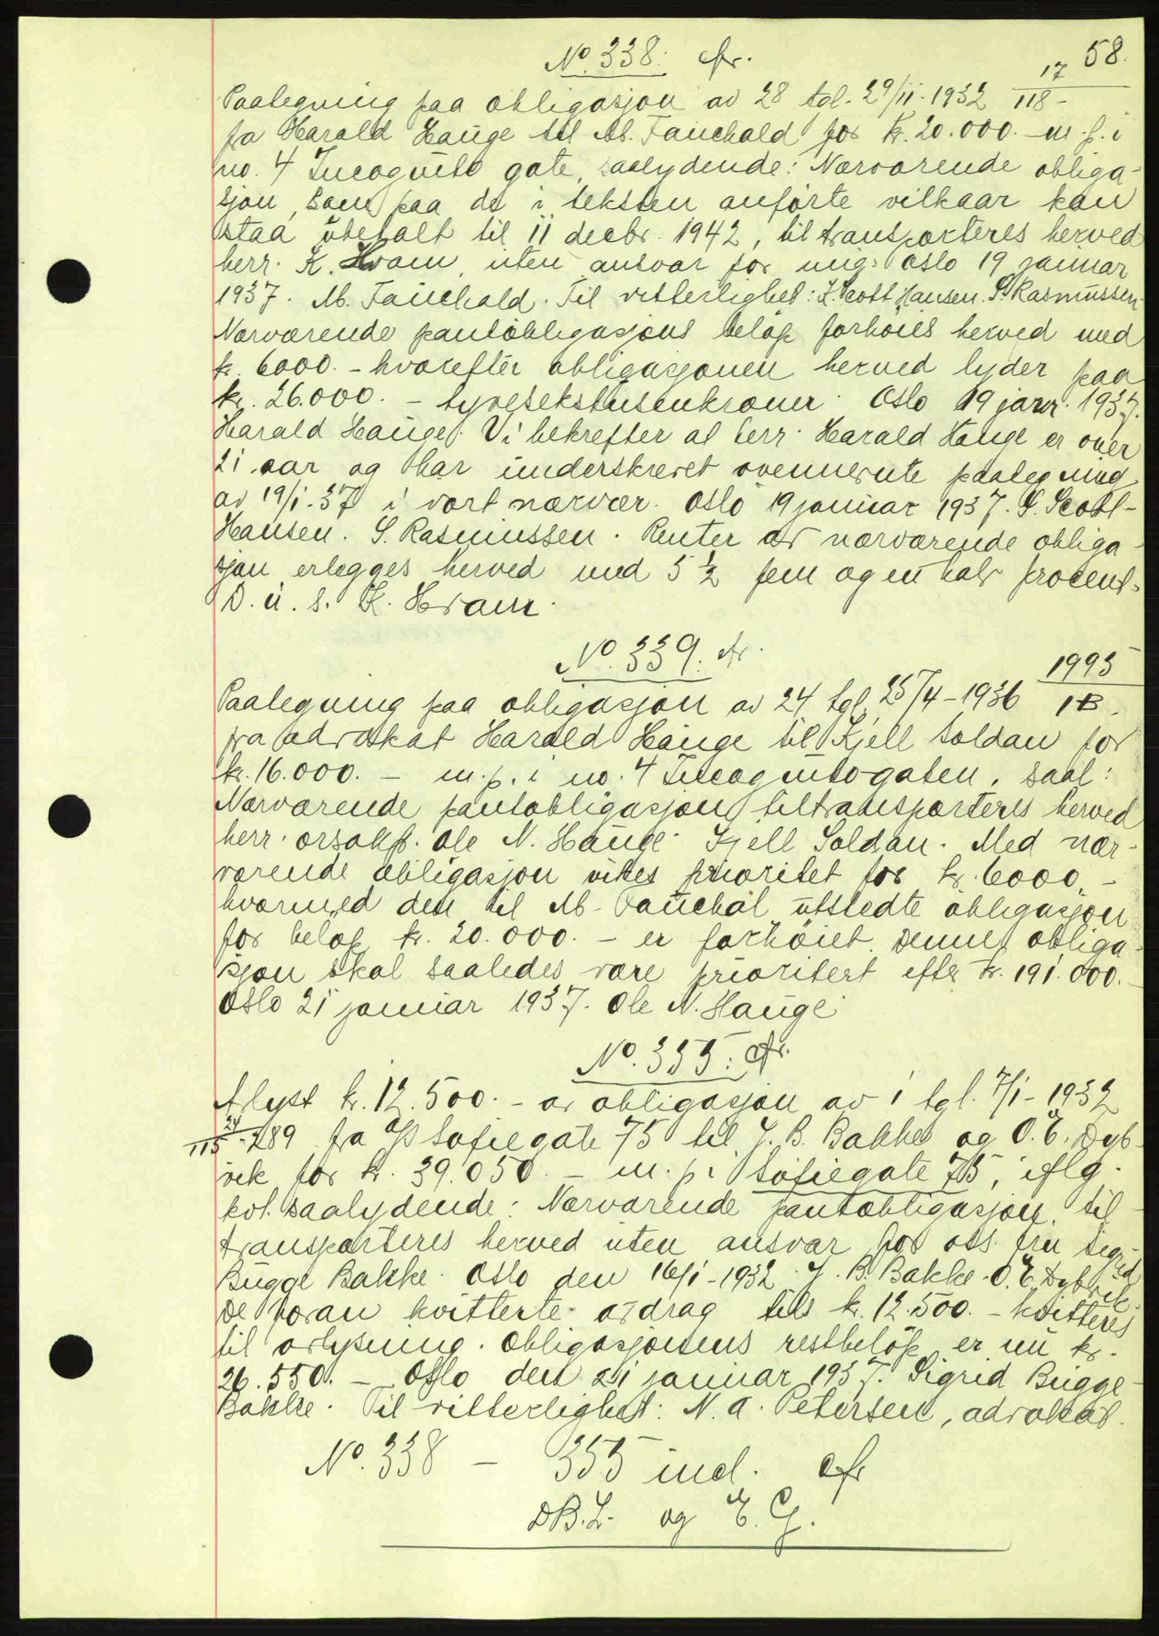 58.
No. 338. cfr.
Paategning paa obligasjon av 28 tgl. 29/11-1932 17/118-
fra Harald Hauge til M. Fauchald for kr. 20.000.- m. p. i
no. 4 Incognito gate, saalydende: Nærværende obliga-
sjon, som paa de i teksten anførte vilkaar kan
staa ubetalt til 11 decbr. 1942, til transporteres herved
herr. K. Hvam, uten ansvar for mig. Oslo 19 januar
1937. M. Fauchald. Til vitterlighet: S. Scott Hansen. S. Rasmussen.
Nærværende pantobligasjons beløp forhøies herved med
kr. 6000.- hvorefter obligasjonen herved lyder paa
kr. 26.000.- tyvesekstusenkroner. Oslo 19 janr. 1937.
Harald Hauge. Vi bekrefter at herr. Harald Hauge er over
21 aar og har underskrevet ovennevnte paategning
av 19/1-37 i vort nærvær. Oslo 19 januar 1937. S. Scott-
Hansen. S. Rasmussen. Renter av nærværende obliga-
sjon erlegges herved med 5 ½ fem og en halv procent.
D. u. s. K. Hvam.
No. 339. cfr.
1995
Paategning paa obligasjon av 24 tgl. 25/4-1936 1B-
fra advokat Harald Hauge til Kjell Soldan for
kr. 16.000.- m. p. i no. 4 Incognitogaten, saal:
Nærværende pantobligasjon tiltransporteres herved
herr. orsakf. Ole N. Hauge. Kjell Soldan. Med nær-
værende obligasjon vikes prioritet for kr. 6000.-
hvormed den til M. Fauchal utstedte obligasjon
for beløp kr. 20.000.- er forhøiet. Denne obliga-
sjon skal saaledes være prioritert efter kr. 191.000.-
Oslo 21 januar 1937. Ole N. Hauge.
No. 355. cfr.
Avlyst kr. 12.500.- av obligasjon av 1 tgl. 7/1-1932
24/115-289 fra A/S Sofiegate 75 til J. B. Bakke og O. E. Dyb-
vik for kr. 39.050.- m. p. i Sofiegate 75, i Alg.
kvt. saalydende: Nærværende pantobligasjon, til
transporteres herved uten ansvar for oss fru Sigrid
Bugge Bakke. Oslo den 16/1-1932. J. B. Bakke. O. E. Dybvik.
De foran kvitterte avdrag tils kr. 12.500.- kvitteres
til avlysning. Obligasjonens restbeløp er nu kr.
26.550.- Oslo den 21 januar 1937. Sigrid Bugge-
Bakke. Til vitterlighet: N. A. Petersen, advokat.
No. 338 - 355 incl. cfr
DB.L. og E. G.